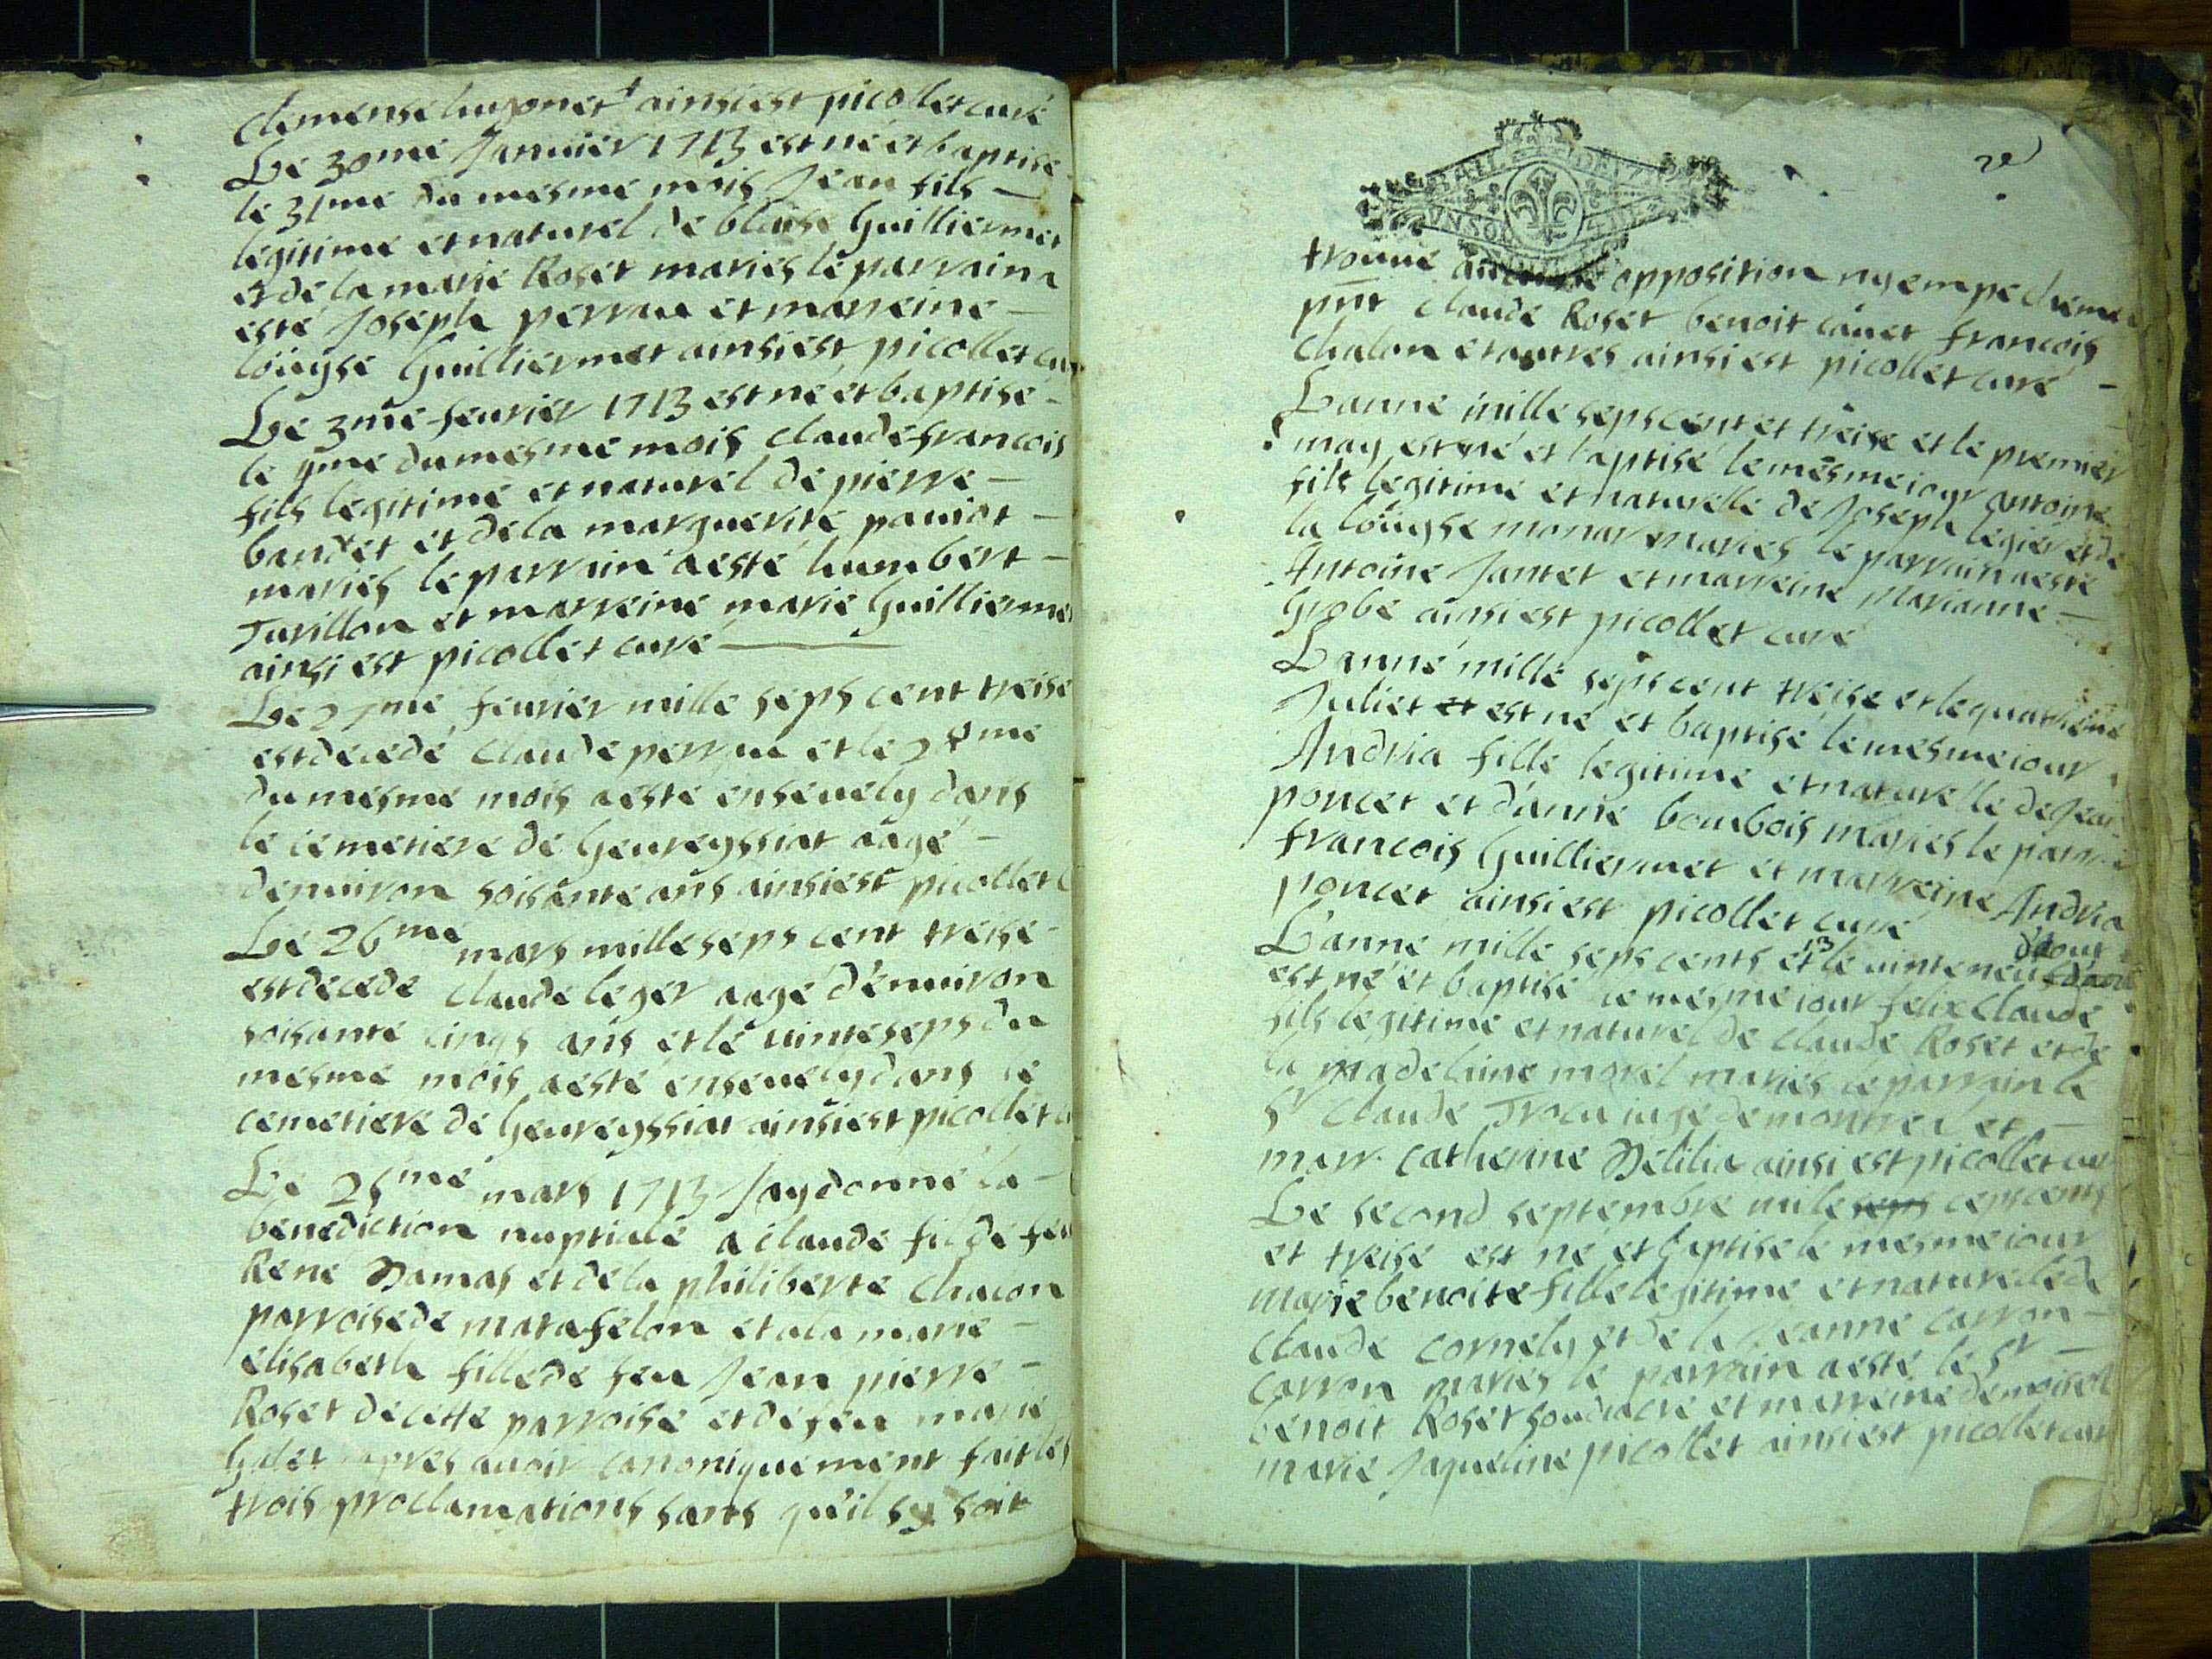 Clemense hugonet ainsi est picollet curé
Le 30me Januier 1713 est né et baptisé
le 31me du mesme mois Jean fils
legitime et naturel de blaise Guilliermet
et de la marie Roset mariés le parrain a
esté Joseph perrin et marreine
loüyse Guilliermet ainsi est picollet cu
Le 3me feurier 1713 est né et baptisé
le du mesme mois claude francois
fils legitime et naturel de pierre
bandet et de la marguerite pauiot
mariés le parrain a esté humbert
Turillon et marreine marie Guilliermet
ainsi est picollet curé
Le feurier mille seps cent treise
est decedé claude et le
du mesme mois a esté enseuely dans
le cemetiere de Geureyssiat aagé
denuiron soisante ans ainsi est picollet c
Le 26me mars mille seps cent treise
est decede claude leger aagé d'enuiron
soisante cinqs ans et le uinteseps du
mesme mois a esté enseuely dans le
cemetiere de Geureyssiat ainsi est picollet c
Le mars 1713 Jay donné la
benediction nuptiale a claude fil de feu
Rene Damas et de la philiberte chacon
parroise de matafelon et a la marie
elisabeth fille de feu Jean pierre
Roset de cette parroise et de feu marie
apres auoir canoniquement fait les
trois proclamations sans qu'il sy soit
2e
GN DE
UN SOL
trouué aucune opposition ny empecheme
pnt claude Roset benoit francois
chalon et autres ainsi est picollet curé
Lanné mille seps cent et treise et le premier
may est né et baptisé le mesme iour antoine
fils legitime et naturelle de Joseph legier et de
la loüyse monar mariés le parrain a esté
Antoine Jantet et marreine Marianne
Grobe ainsi est picollet curé
Lanné mille seps cent treise et le quatrieme
Juliet et est né et baptisé le mesme iour
Andria fille legitime et naturelle de Jean
poncet et d'anne bourbois mariés le parrai
francois Guilliermet et marreine Andria
poncet ainsi est picollet curé
L'anné mille seps cents 13 et le uinteneuf d'aout
est né et baptisé le mesme iour felix claude
fils legitime et naturel de claude Roset et de
la madeleine morel mariés le parrain le
Sr claude Trocu iuge de montreal et
marr. catherine Delilia ainsi est picollet cur
Le second septembre mile seps cepscents
et treise est né et baptisé le mesme iour
marie benoite fille legitime et naturelle de
claude cornely et de la Jeanne carron
carron mariés le parrain a esté le Sr
benoit Roset soudiacre et marreine demoisel
marie Jaqueline picollet ainsi est picollet cur